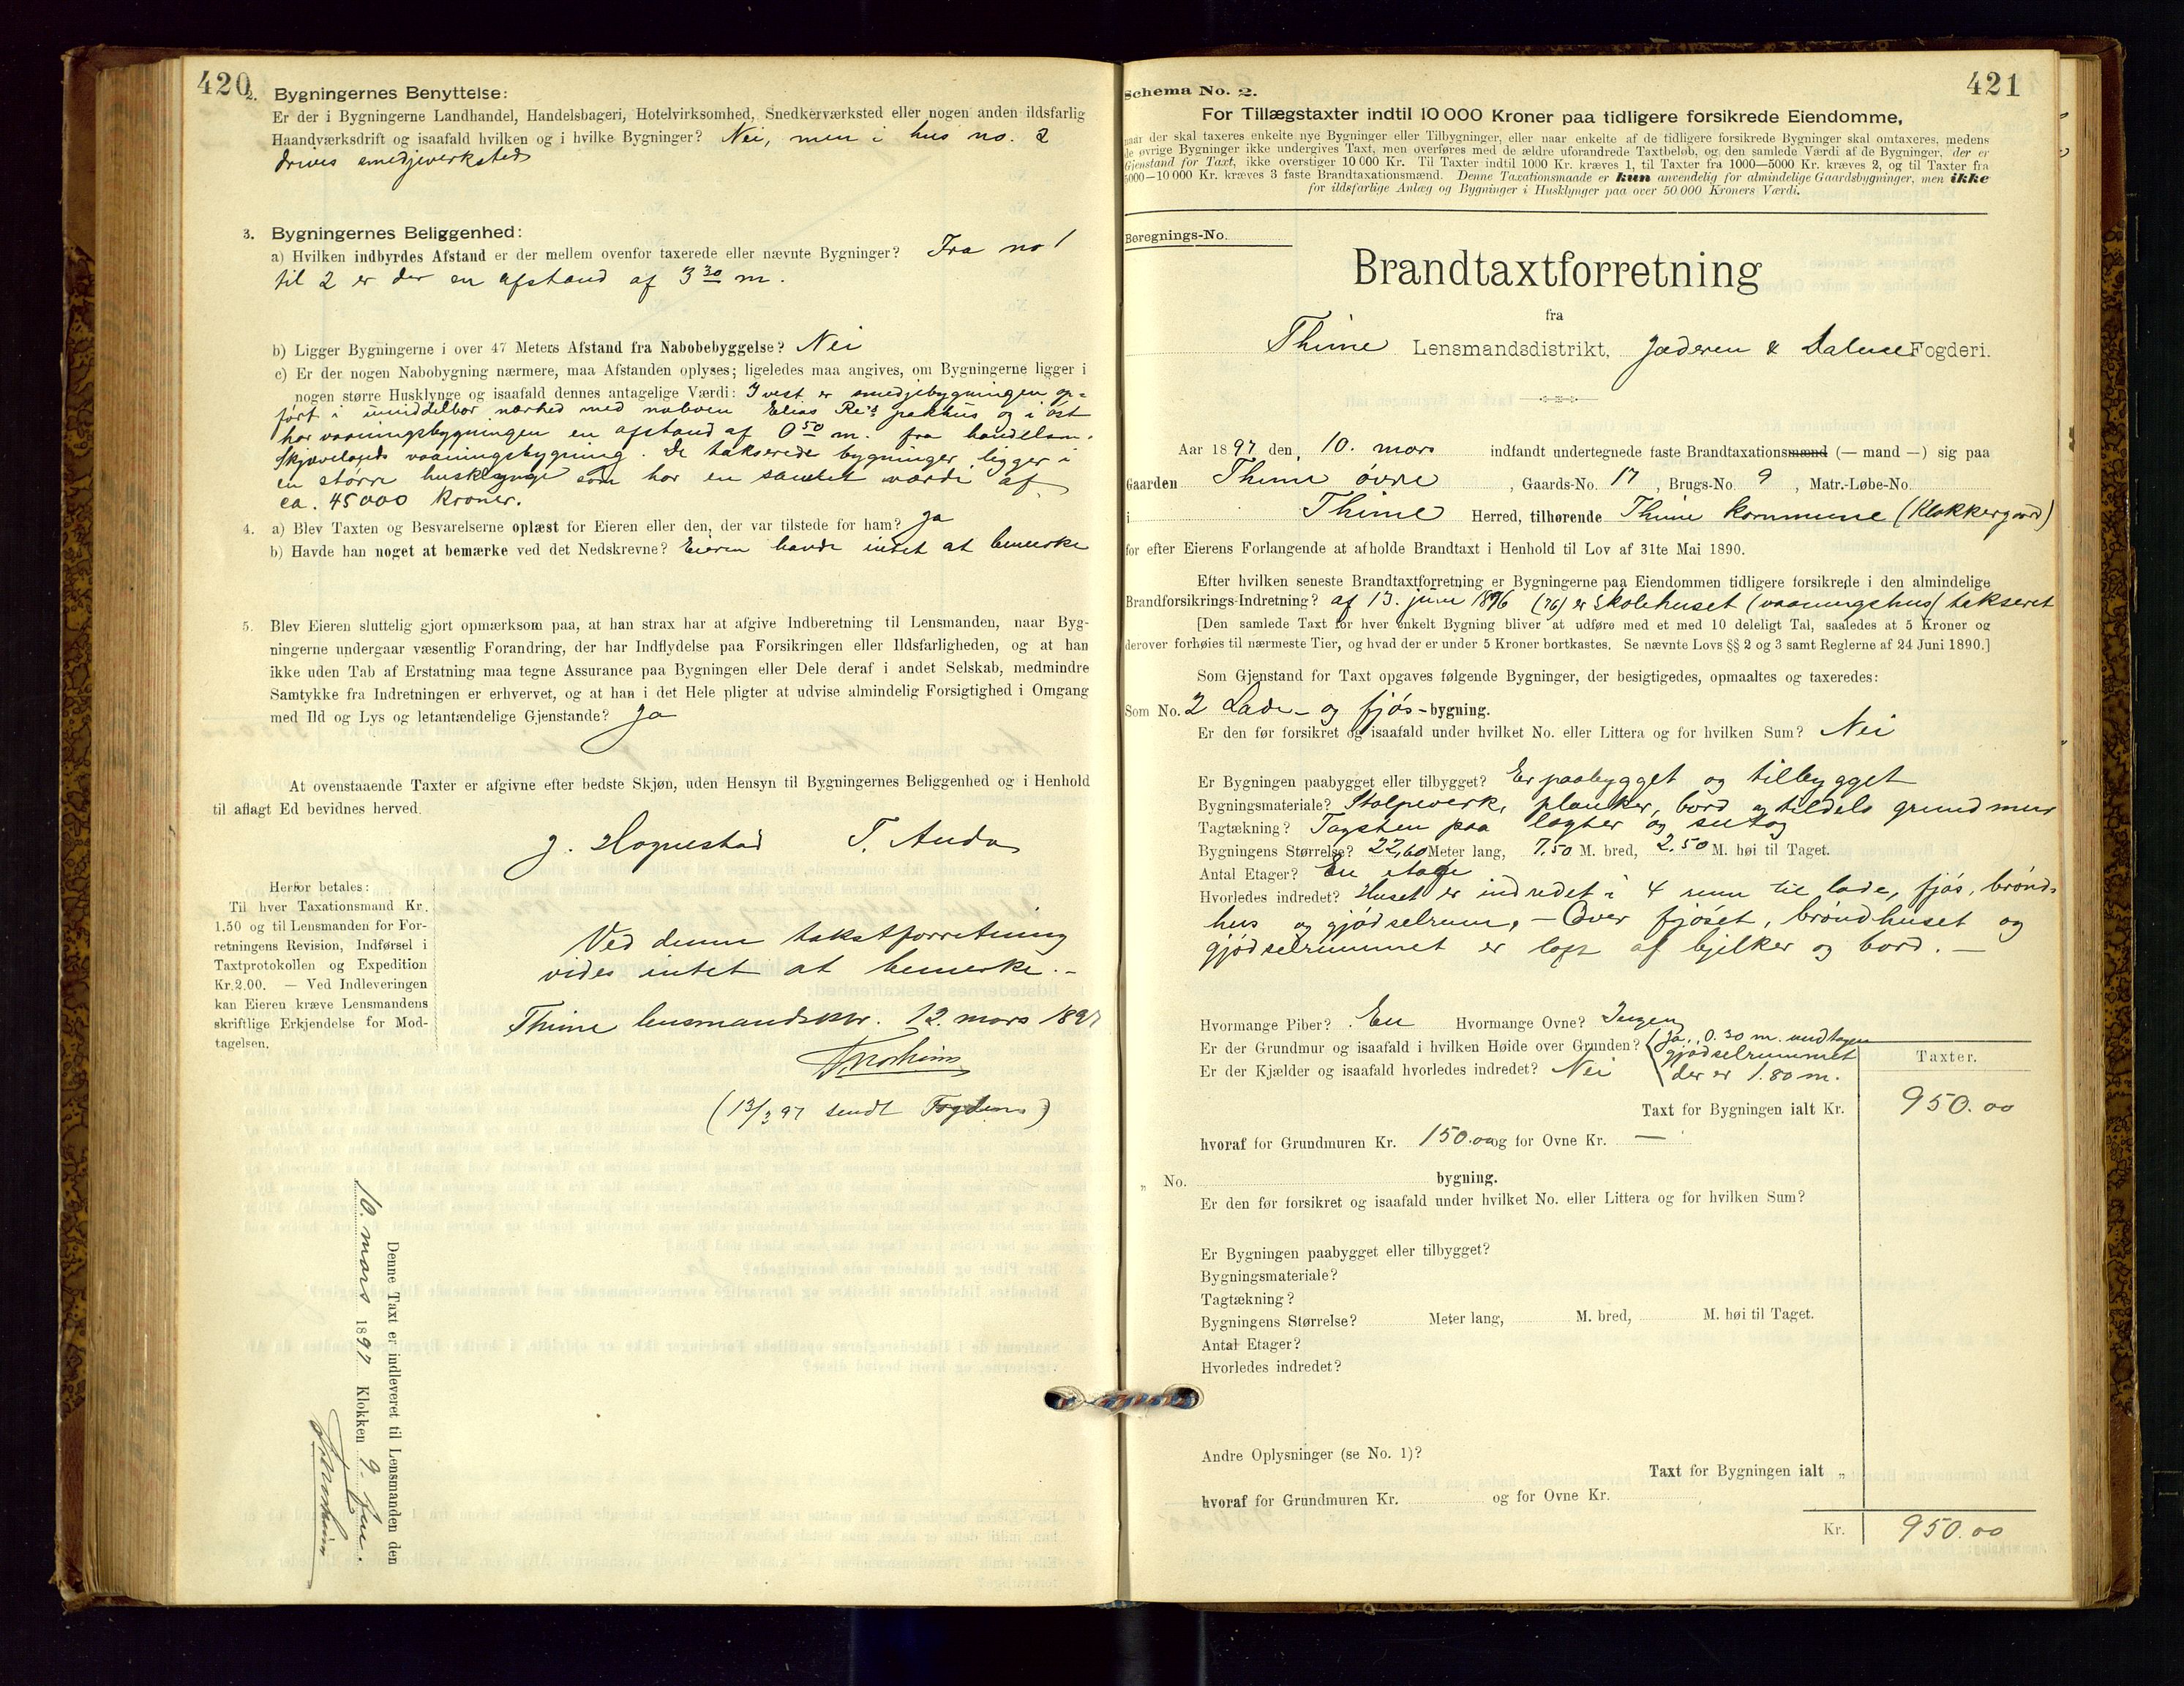 420
2. Bygningernes Benyttelse:
Er der i Bygningerne Landhandel, Handelsbageri, Hotelvirksomhed, Snedkerværksted eller nogen anden ildsfarlig
Haandværksdrift og isaafald hvilken og i hvilke Bygninger? Nei, men i hus no. 2
drives smedjeverksted
3. Bygningernes Beliggenhed:
a) Hvilken indbyrdes Afstand er der mellem ovenfor taxerede eller nævnte Bygninger? Fra no 1
til 2 er der en afstand af 3 30 m.
b) Ligger Bygningerne i over 47 Meters Afstand fra Nabobebyggelse? Nei
c) Er der nogen Nabobygning nærmere, maa Afstanden oplyses; ligeledes maa angives, om Bygningerne ligger i
nogen større Husklynge og isaafald dennes antagelige Værdi: I vest er smedjebygningen op=
ført i umiddelbar nærhed med naboen Elias Re's pakhus og i øst
har vaaningsbygningen en afstand af 0 50 m. fra handelsm.
Skjævelands vaaningsbygning. De takserede bygninger ligger i
en større husklynge som har en samlet værdi af
ca. 45000 kroner.
4. a) Blev Taxten og Besvarelserne oplæst for Eieren eller den, der var tilstede for ham? Ja
b) Havde han noget at bemærke ved det Nedskrevne? Eieren havde intet at bemerke
5. Blev Eieren sluttelig gjort opmærksom paa, at han strax har at afgive Indberetning til Lensmanden, naar Byg-
ningerne undergaar væsentlig Forandring, der har Indflydelse paa Forsikringen eller Ildsfarligheden, og at han
ikke uden Tab af Erstatning maa tegne Assurance paa Bygningen eller Dele deraf i andet Selskab, medmindre
Samtykke fra Indretningen er erhvervet, og at han i det Hele pligter at udvise almindelig Forsigtighed i Omgang
med Ild og Lys og letantændelige Gjenstande? Ja
At ovenstaaende Taxter er afgivne efter bedste Skjøn, uden Hensyn til Bygningernes Beliggenhed og i Henhold
til aflagt Ed bevidnes herved.
J. Hognestad T. Anda
Herfor betales:
Til hver Taxationsmand Kr.
1.50 og til Lensmanden for For-
retningens Revision, Indførsel i
Taxtprotokollen og Expedition
Kr. 2.00. — Ved Indleveringen
kan Eieren kræve Lensmandens
skriftlige Erkjendelse for Mod-
tagelsen.
Ved denne takstforretning
vides intet at bemerke.-
Thime lensmandsktr. 12. mars 1897
(13/3 97 sendt Fogden)
Denne Taxt er indleveret til Lensmanden den
10. mars 1897 Klokken 9. fm.
421
Schema No. 2.
For Tillægstaxter indtil 10 000 Kroner paa tidligere forsikrede Eiendomme,
naar der skal taxeres enkelte nye Bygninger eller Tilbygninger, eller naar enkelte af de tidligere forsikrede Bygninger skal omtaxeres, medens
de øvrige Bygninger ikke undergives Taxt, men overføres med de ældre uforandrede Taxtbeløb, og den samlede Værdi af de Bygninger, der er
Gjenstand for Taxt, ikke overstiger 10 000 Kr. Til Taxter indtil 1000 Kr. kræves 1, til Taxter fra 1000—5000 Kr. kræves 2, og til Taxter fra
5000—10 000 Kr. kræves 3 faste Brandtaxationsmænd. Denne Taxationsmaade er kun anvendelig for almindelige Gaardsbygninger, men ikke
for ildsfarlige Anlæg og Bygninger i Husklynger paa over 50 000 Kroners Værdi.
Beregnings-No.
Brandtaxtforretning
fra
Thime Lensmandsdistrikt, Jæderen & Dalene Fogderi.
Aar 1897 den 10. mars indfandt undertegnede faste Brandtaxationsmænd (— mand —) sig paa
Gaarden Thime øvre, Gaards-No. 17, Brugs-No. 9, Matr.-Løbe-No.
i Thime Herred, tilhørende Thime kommune (Klokkergaard)
for efter Eierens Forlangende at afholde Brandtaxt i Henhold til Lov af 31te Mai 1890.
Efter hvilken seneste Brandtaxtforretning er Bygningerne paa Eiendommen tidligere forsikrede i den almindelige
Brandforsikrings-Indretning? af 13. juni 1876 (76) er Skolehuset (vaaningshus) takseret
[Den samlede Taxt for hver enkelt Bygning bliver at udføre med et med 10 deleligt Tal, saaledes at 5 Kroner og
derover forhøies til nærmeste Tier, og hvad der er under 5 Kroner bortkastes. Se nævnte Lovs §§ 2 og 3 samt Reglerne af 24 Juni 1890.]
Som Gjenstand for Taxt opgaves følgende Bygninger, der besigtigedes, opmaaltes og taxeredes:
Som No. 2 Lade- og fjøs-bygning.
Er den før forsikret og isaafald under hvilket No. eller Littera og for hvilken Sum? Nei
Er Bygningen paabygget eller tilbygget? Er paabygget og tilbygget
Bygningsmateriale? Stolpeverk, planker, bord og tildels grundmur
Tagtækning? Tagsten paa lægter og sutag
Bygningens Størrelse? 22,60 Meter lang, 7.50 M. bred, 2.50 M. høi til Taget.
Antal Etager? En etage
Hvorledes indredet? Huset er indredet i 4 rum til lade, fjøs, brønd-
hus og gjødselrum, - Over fjøset, brøndhuset og
gjødselrummet er loft af bjelker og bord. -
Hvormange Piber? En Hvormange Ovne? Ingen
Er der Grundmur og isaafald i hvilken Høide over Grunden? Ja, 0.30 m. undtagen
gjødselrummet
Er der Kjælder og isaafald hvorledes indredet? Nei der er 1.80 m.
Taxter.
Taxt for Bygningen ialt Kr. 950.00
hvoraf for Grundmuren Kr. 150.00 og for Ovne Kr. —
" No. bygning.
Er den før forsikret og isaafald under hvilket No. eller Littera og for hvilken Sum?
Er Bygningen paabygget eller tilbygget?
Bygningsmateriale?
Tagtækning?
Bygningens Størrelse? Meter lang, M. bred, M. høi til Taget.
Antal Etager?
Hvorledes indredet?
Andre Oplysninger (se No. 1)?
Taxt for Bygningen ialt "
hvoraf for Grundmuren Kr. og for Ovne Kr.
Kr. 950.00